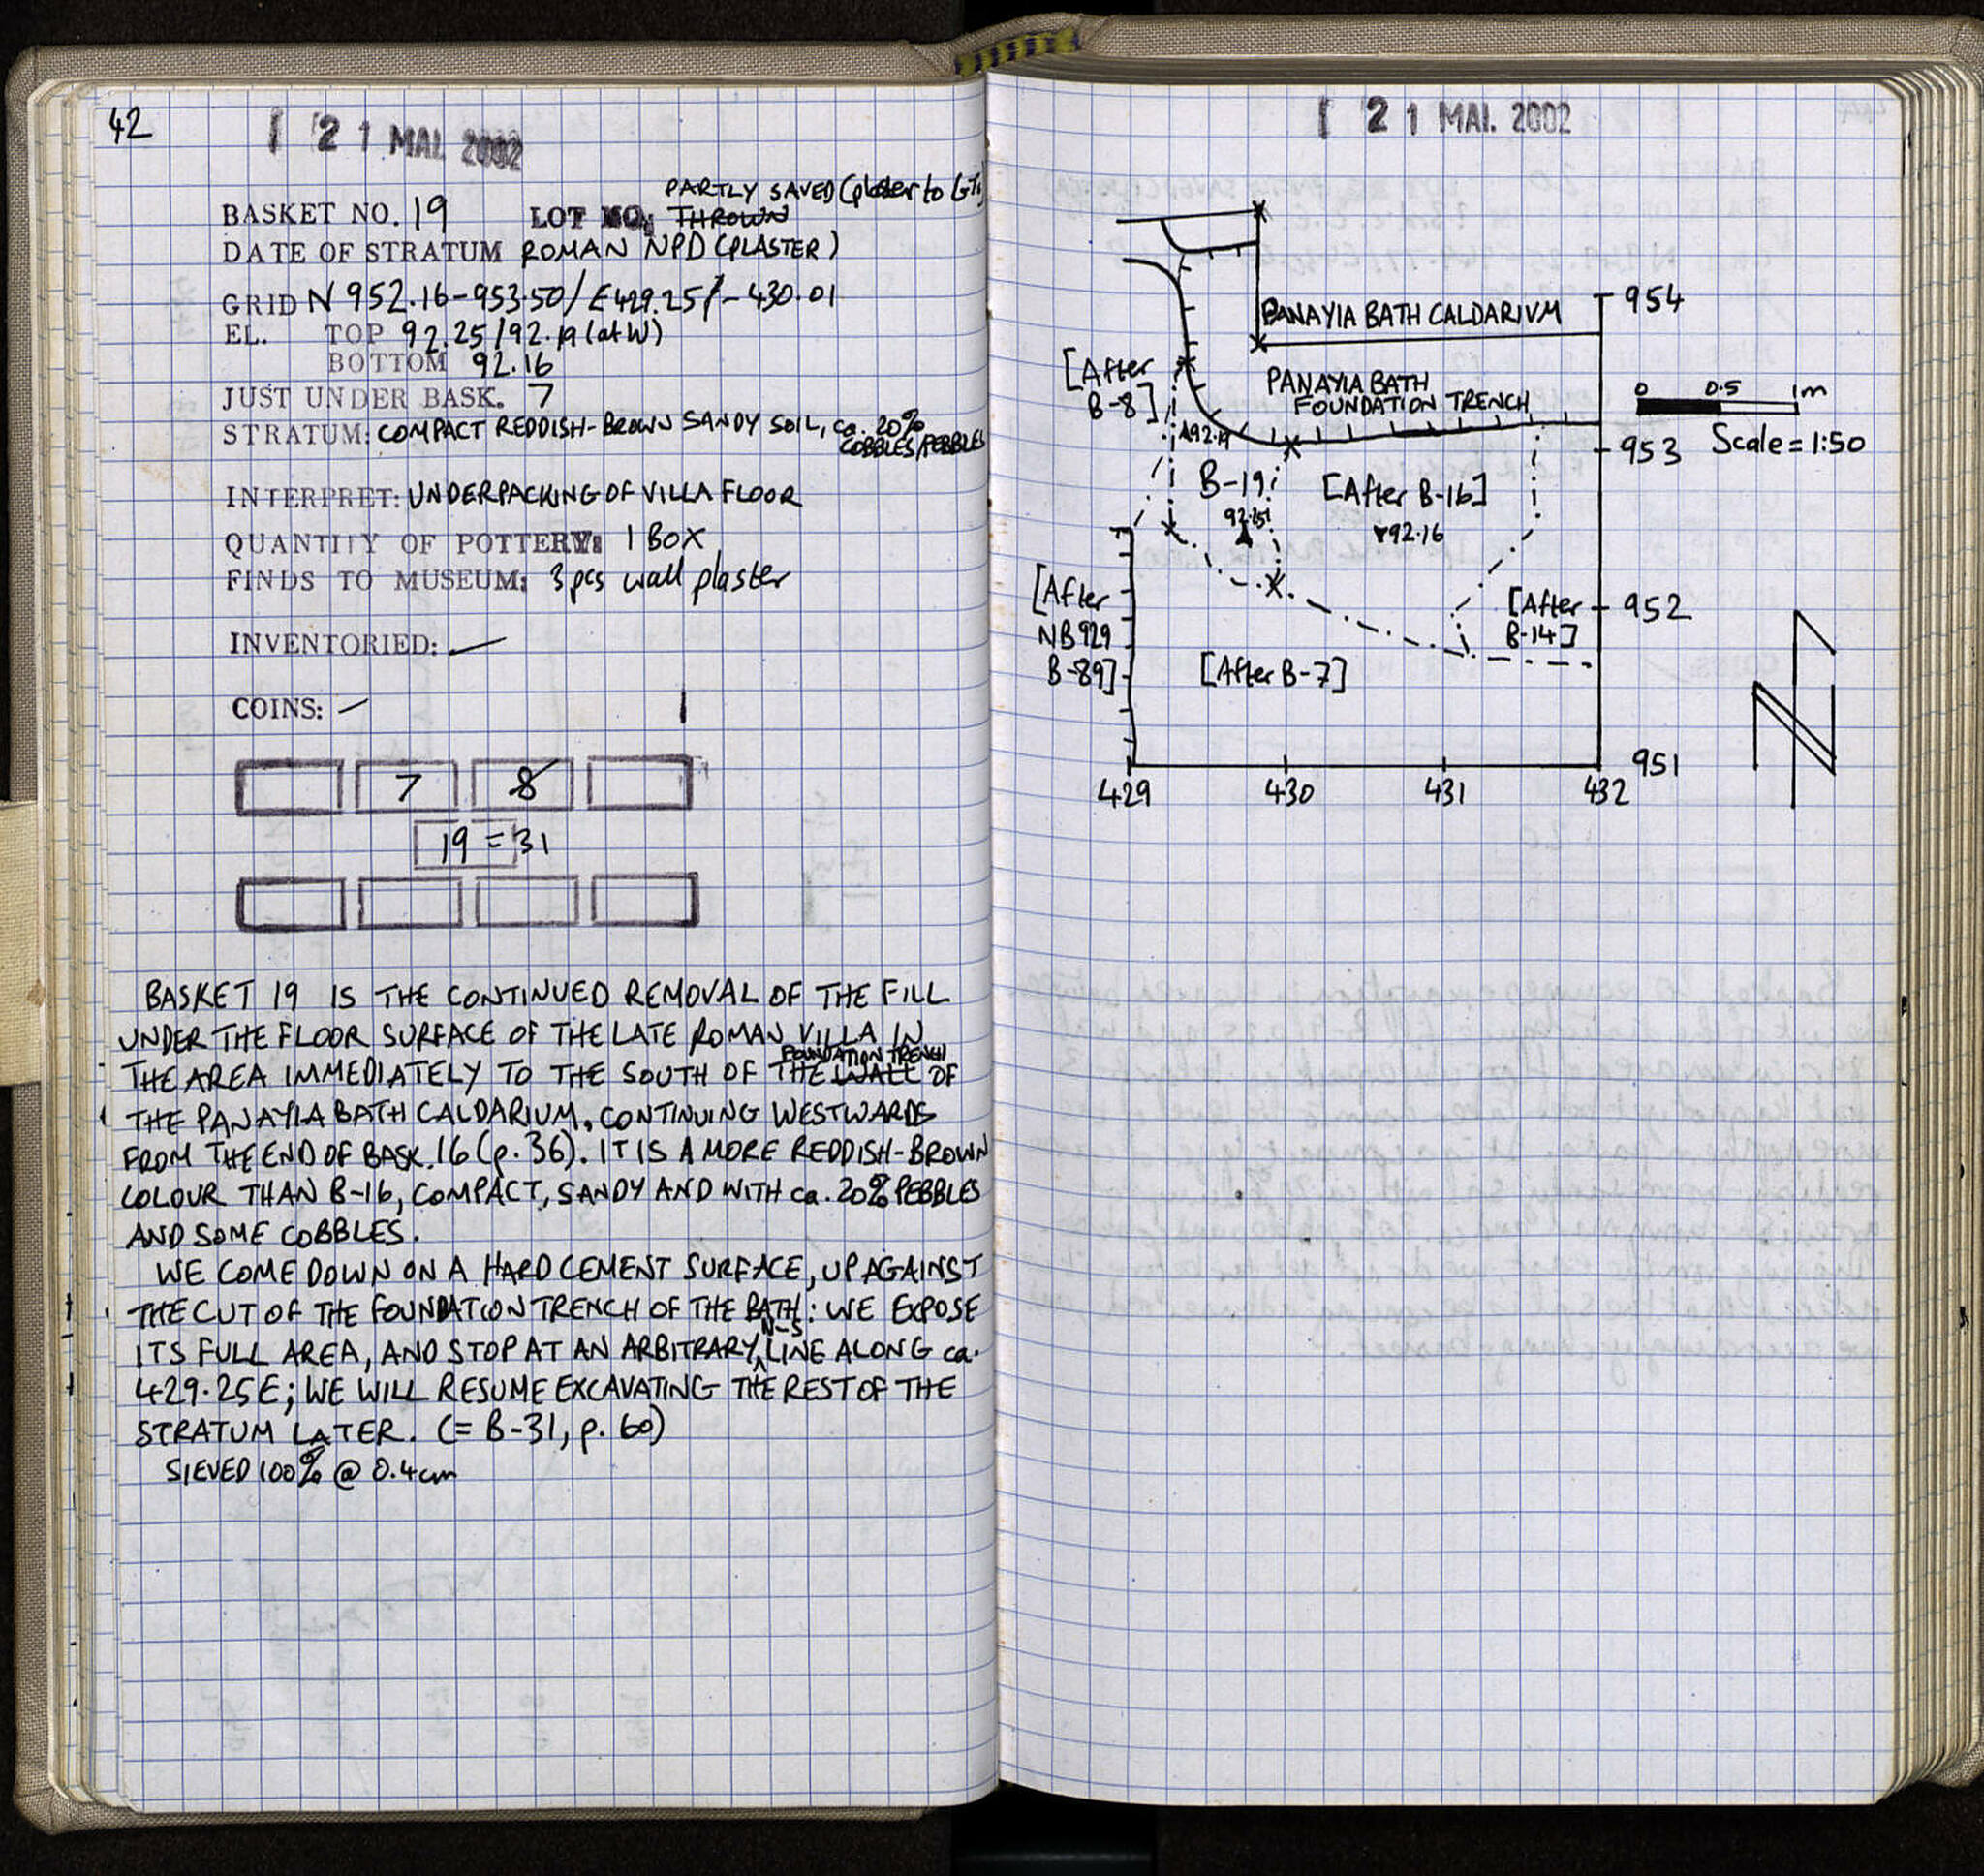 42
21 MAI. 2002
PARTLY SAVED (plaster to
BASKET NO. 19 LOT NO. THROWN
DATE OF STRATUM ROMAN NPD (PLASTER)
GRID N 952.16-953.50/E429.25/-430.01
EL. TOP 92.25/92.19 (at W)
BOTTOM 92.16
JUST UNDER BASK. 7
STRATUM: COMPACT REDDISH-BROWN SANDY SOIL, ca. 20%
COBBLES/PEBBLES
INTERPRET: UNDERPACKING OF VILLA FLOOR
QUANTITY OF POTTERY: 1 BOX
FINDS TO MUSEUM: 3 pcs wall plaster
INVENTORIED: —
COINS: —
7 8
19 = 31
BASKET 19 IS THE CONTINUED REMOVAL OF THE FILL
UNDER THE FLOOR SURFACE OF THE LATE ROMAN VILLA IN
FOUNDATION TRENCH
THE AREA IMMEDIATELY TO THE SOUTH OF THE WALL OF
THE PANAYIA BATH CALDARIUM, CONTINUING WESTWARDS
FROM THE END OF BASK. 16 (p. 36). IT IS A MORE REDDISH-BROWN
COLOUR THAN B-16, COMPACT, SANDY AND WITH ca. 20% PEBBLES
AND SOME COBBLES.
WE COME DOWN ON A HARD CEMENT SURFACE, UP AGAINST
THE CUT OF THE FOUNDATION TRENCH OF THE BATH: WE EXPOSE
N-S
ITS FULL AREA, AND STOP AT AN ARBITRARY LINE ALONG ca.
429.25E; WE WILL RESUME EXCAVATING THE REST OF THE
STRATUM LATER. (= B-31, p. 60)
SIEVED 100% @ 0.4cm
21 MAI. 2002
PANAYIA BATH CALDARIUM
954
[After
B-8]
PANAYIA BATH
FOUNDATION TRENCH
0 0.5 1m
92.19
953 Scale = 1:50
B-19
[After B-16]
92.25
92.16
[After
NB929
B-89]
[After
B-14]
952
[After B-7]
N
951
429 430 431 432